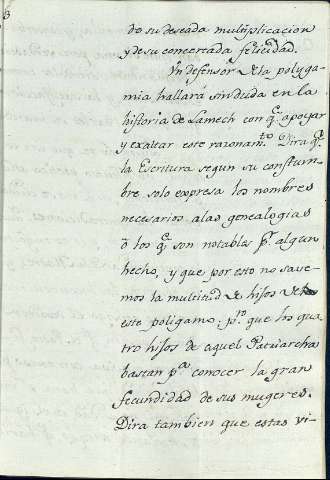 3
do su deseada multiplicacion
y de su concertada felicidad.
Un defensor de la polyga-
mia hallará sin duda en la
historia de Lamech con q.e apoyar
y exaltar este razonam.to Dira q.e
la Escritura segun su constum-
bre solo expresa los nombres
necesarios a las genealogias
ò los q.e son notables p.r algun
hecho, y que por esto no save-
mos la multitud de hijos de
este poligamo. p.o que los qua
tro hijos de aquel Patriarcha
bastan p.a conocer la gran
fecundidad de sus mugeres.
Dira tambien que estas vi-